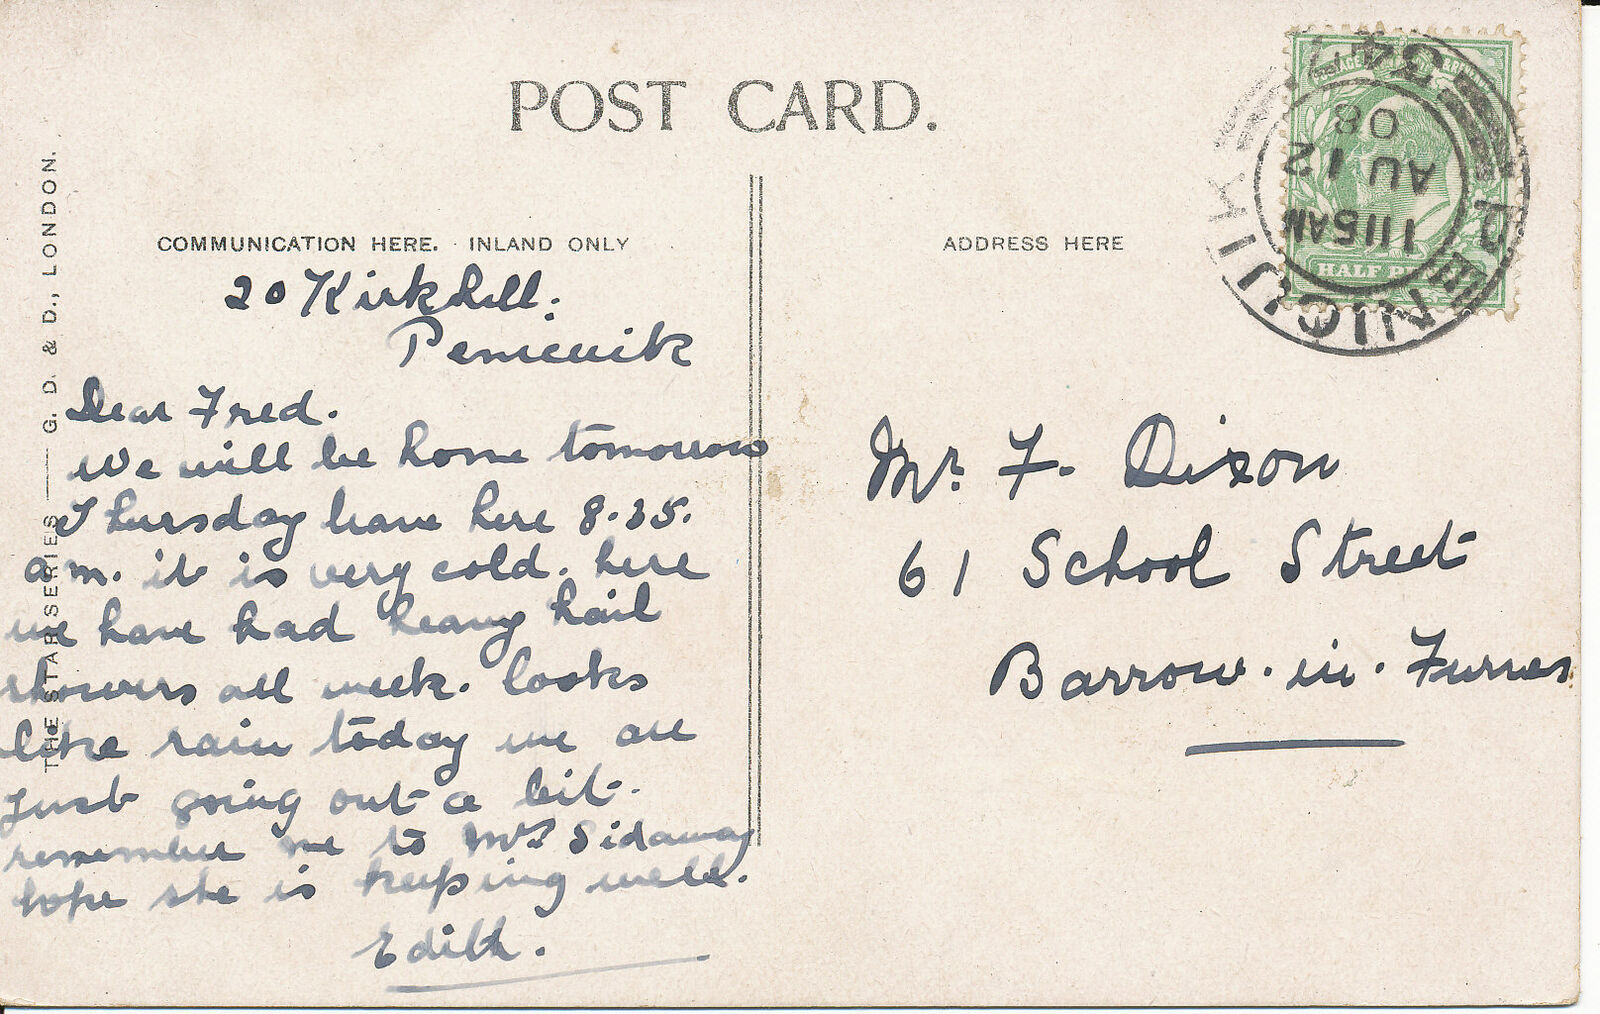 POST CARD.
THE STAR SERIES — G. D. & D., LONDON.
COMMUNICATION HERE. INLAND ONLY
20 Kirkhill.
Penicuik
Dear Fred.
We will be home tomorrow
Thursday leave here 8.35.
a.m. it is very cold. here
we have had heavy hail
showers all week. looks
like rain today we are
Just going out a bit.
remember me to Mrs Sidaway
hope she is keeping well.
Edith.
ADDRESS HERE
Mr. F. Dixon
61 School Street
Barrow. in. Furness.
HALF
PENICUIK
11 15AM
AU 12
08